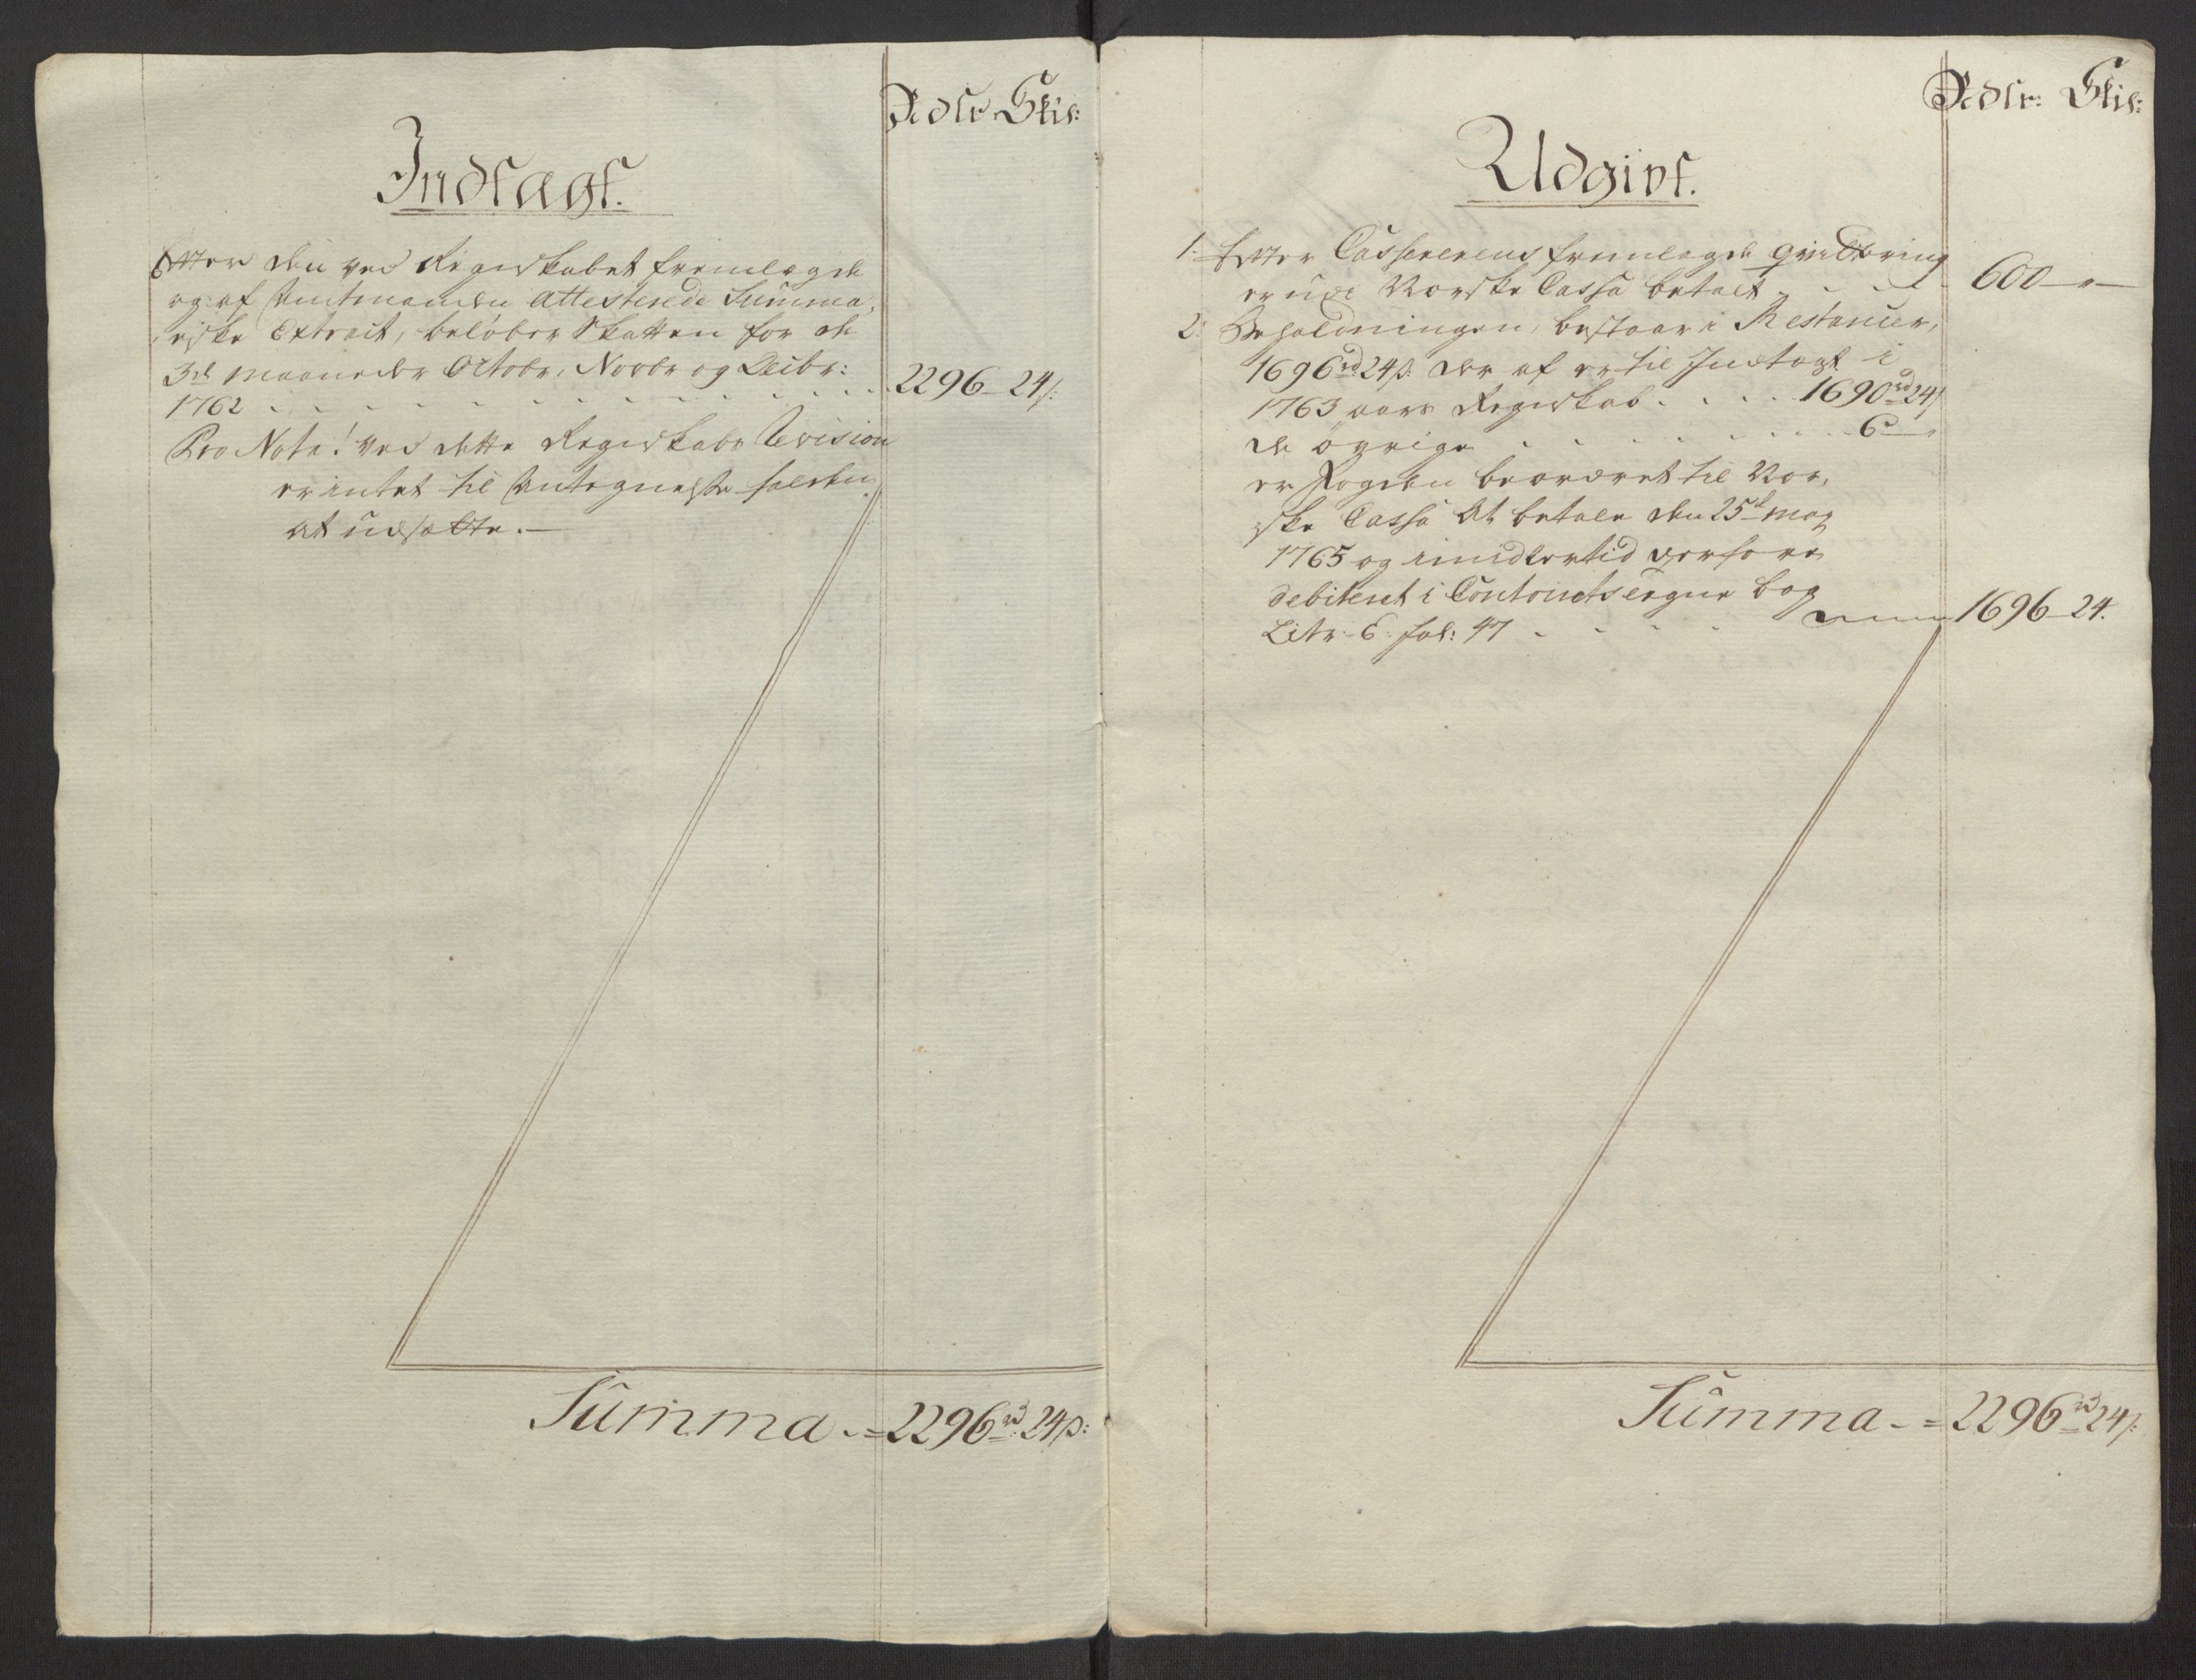 Rdlr Skil:
Indtægt.
Efter den ved Regnskabet fremlagde
og af Amtmanden Attesterede Summa-
riske Extract, beløber Skatten for de
3de Maaneder Octobr, Novbr og Decbr:
1762 . . . . . . . . . . 2296 - 24 s:
Pro Nota! ved dette Regnskabs Revision
er intet til Antegnelse falden
at udsætte. —
Summa - = 2296 rd 24 s:
Rdlr: Skil:
Udgift.
1. Efter Casserens fremlagde qvittering
er udi Norske Cassa betalt . . . 600 - "
2. Beholdningen, bestaar i Restancer,
1696 rd 24 s: der af er til Indtægt i
1763 aars Regnskab . . . . 1690 rd 24 s
de øvrige . . . . . . . . 6 - "
er Fogden beordret til Nor-
ske Cassa At betale den 25de Maj
1765 og imidlertid derfore
debiteret i Contoirets egne bog
Litr: E: fol: 47 . . . . 1696 - 24.
Summa - = 2296 rd 24 s: